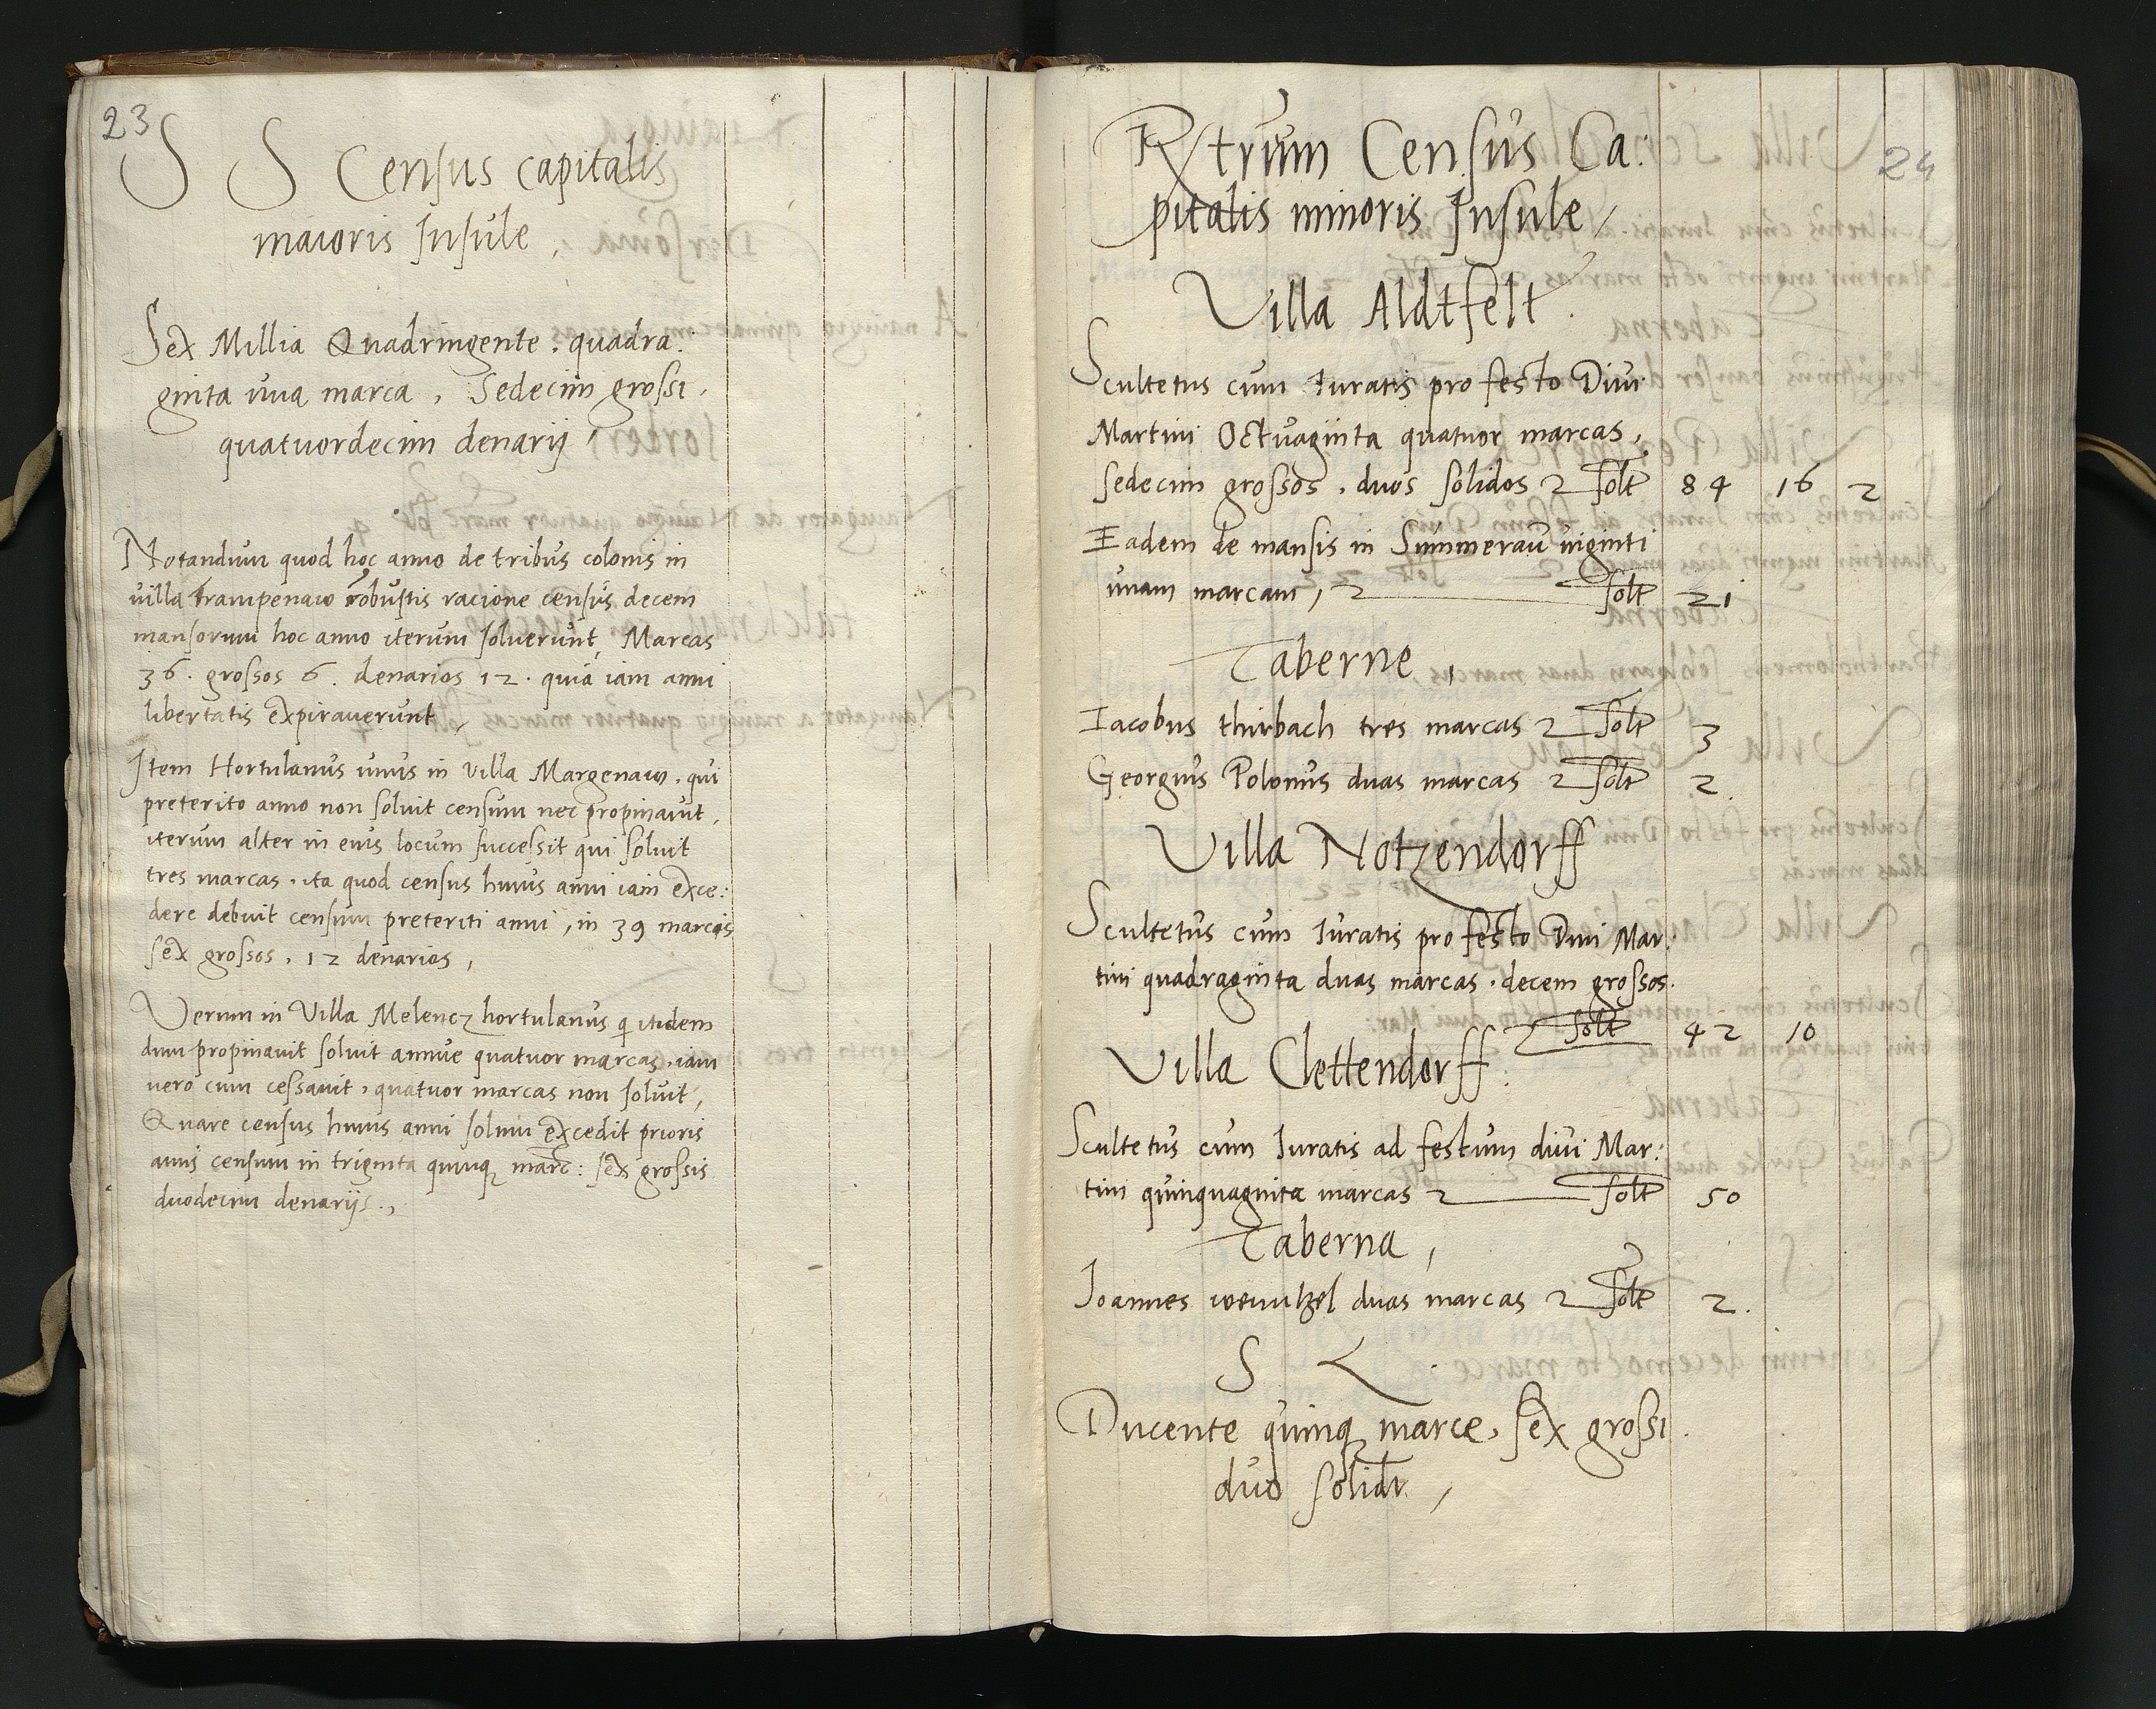 23
S S Census capitalis
maioris Insule,
Sex Millia Quadringente. quadra:
ginta una marca, Sedecim grossi,
quatuordecim denarij,
Notandum quod hoc anno de tribus colonis in
villa Trampenaw robustis racione census decem
mansorum hoc anno iterum soluerunt, Marcas
36. grossos 6. denarios 12. quia iam anni
libertatis expirauerunt,
Item Hortulanus unus in Villa Margenaw. qui
preterito anno non soluit censum nec propinauit,
iterum alter in eius locum successit qui soluit
tres marcas. ita quod census huius anni iam exce:
dere debuit censum preteriti anni, in 39 marcis
sex grossos. 12 denarios,
Verum in Villa Melencz hortulanus qi itidem
dum propinauit soluit annue quatuor marcas. iam
uero cum cessauit. quatuor marcas non soluit,
Quare census huius anni solum excedit prioris
anni censum in triginta quinq marc: sex grossis
duodecim denarijs.,
24
Rstrum Census Ca:
pitalis minoris Insule,
Villa Aldtfelt.
Scultetus cum Iuratis pro festo Diui
Martini Octuaginta quatuor marcas,
sedecim grossos. duos solidos 2 solt 84 16 2
Eadem de mansis in Summerau uiginti
unam marcam, 2 solt 21
Taberne,
Iacobus thirbach tres marcas 2 solt 3
Georgius Polonus duas marcas 2 solt 2.
Villa Notzendorff
Scultetus cum Iuratis pro festo Diui Mar:
tini quadraginta duas marcas. decem grossos.
2 solt 42 10
Villa Clettendorff.
Scultetus cum Iuratis ad festum diui Mar:
tini quinquaginta marcas 2 solt 50
Taberna,
Ioannes wenutzel duas marcas 2 solt 2.
S L.
Ducente quinq marce. sex grossi.
duo solidi,